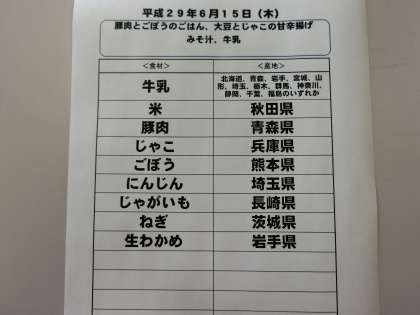 平成29年6月15日（木）
豚肉とごぼうのごはん、大豆とじゃこの甘辛揚げ
みそ汁、牛乳
＜食材＞ ＜産地＞
牛乳 北海道、青森、岩手、宮城、山形、埼玉、栃木、群馬、神奈川、静岡、千葉、福島のいずれか
米 秋田県
豚肉 青森県
じゃこ 兵庫県
ごぼう 熊本県
にんじん 埼玉県
じゃがいも 長崎県
ねぎ 茨城県
生わかめ 岩手県